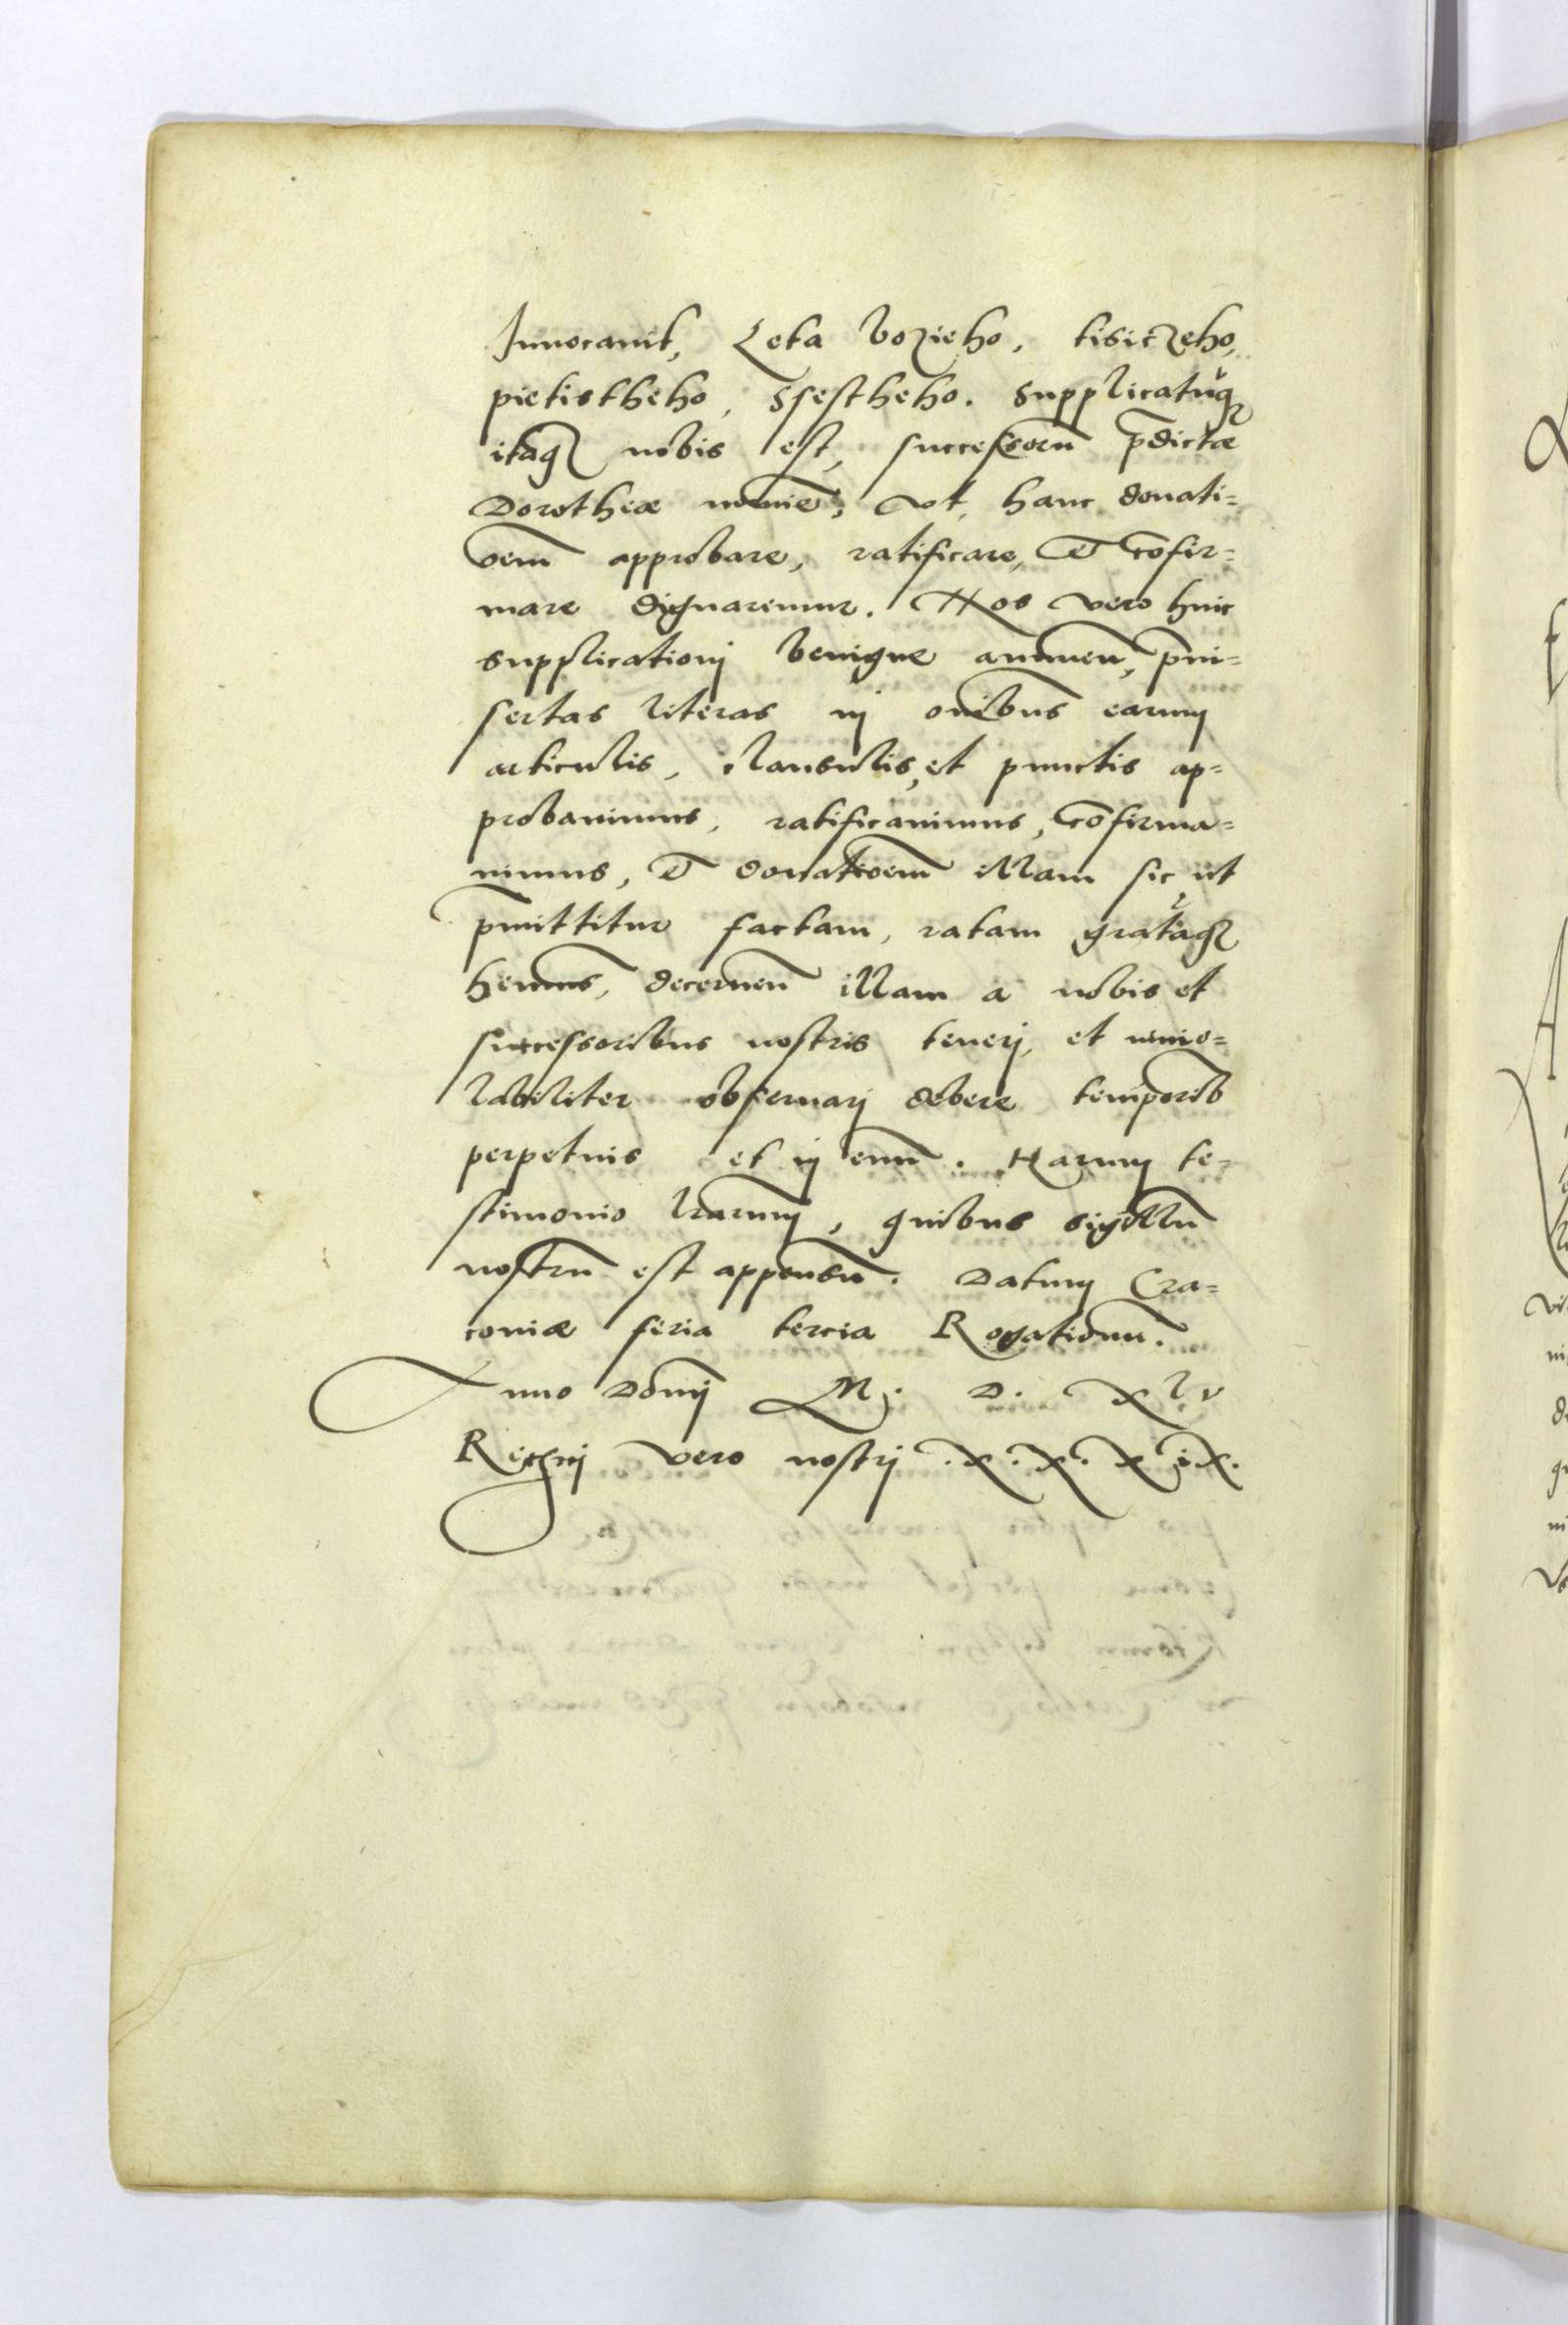 Inuocauit, Leta bozieho, tisiczeho,
pietistheho, Ssestheho. Supplicatūq₃
itaq₃ nobis est, successorū p̄dictæ
Dorotheæ nomīe, vt, hanc donati=
oem̄ approbare, ratificare, et cōfir=
mare dignaremur. Nos vero huic
supplicationj benigne annuen̄, p̄in=
sertas literas in om̄ibus earum
articulis, clausulis, et punctis ap=
probauimus, ratificauimus, cōfirma=
uimus, et donatioem̄ illam sic, ut
p̄mittitur factam, ratam gratāq₃
hēmus, decernen̄ illam a nobis et
successoribus nostris tenerj, et inuio=
labiliter obseruarj debere temporib
perpetuis et in euū. Harum te=
stimonio l̄rarum, quibus sigillū
nostrū est appensū. Datum Cra=
couiæ feria tercia Rogationū.
Anno Domj M. D. xlv
Regnj vero nostrj .x.x.x ix.